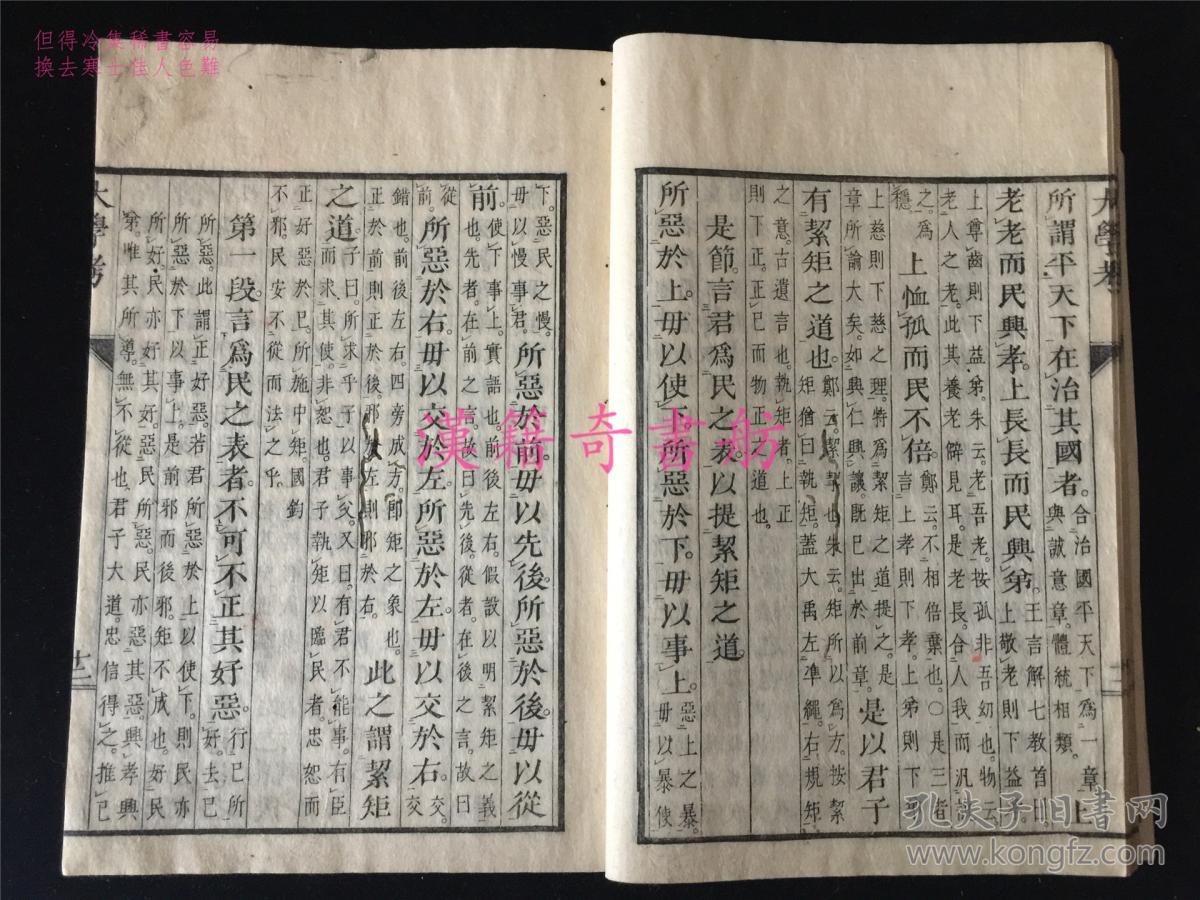 但得冷集稀書容易
換去寒士佳人色難
所謂平天下在治其國者。合治國平天下爲一章上
與誠意章。體統相類。
老老而民興孝。上長長而民興弟。王言解七教首曰。
上敬老則下益孝。
上尊齒則下益弟。朱云。老吾老。按孤非吾幼也。物云
老人之老。此其養老僻見耳。是老長。合人我而汎言
之。爲穩
上恤孤而民不倍。鄭云。不相倍棄也。〇是三者
言上孝則下孝。上弟則下弟
上慈則下慈之理。特爲絜矩之道提之。是
章所諭大矣。如興仁興讓。既已出於前章。是以君子
有絜矩之道也。
矩猶曰執矩。蓋大禹左準繩。右規矩。
之意。古遺言也。執矩者。上正
則下正。正己而物正之道也。
是節。言君爲民之表。以提絜矩之道。
所惡於上。毋以使下。所惡於下。毋以事上。惡上之暴。
毋以暴使
下。惡民之慢。
毋以慢事君。所惡於前。毋以先後。所惡於後。毋以從
前。使下事上。實語也。前後左右。假設以明絜矩之義
也。先者。在前之言。故曰先後。從者。在後之言。故曰
從前。所惡於右。毋以交於左。所惡於左。毋以交於右。交
錯也。前後左右。四旁成方。卽矩之象也。
正於前則正於後。邪於左則邪於右。此之謂絜矩
之道。子曰。所求乎子以事父。又曰。有君不能事。有臣
而求其使。非恕也。君子執矩以臨民者。忠恕而
正好惡於已。所施中矩。國鈞
不邪。民安不從而法之乎
第一段。言爲民之表者。不可不正其好惡。行已所
好。去已
所惡。此謂正好惡。若君所惡於上以使下。則民亦
所惡於下以事上。是前邪而後邪。矩不成也。好民
所好。民亦好其好。惡民所惡。民亦惡其惡。興孝興
弟。唯其所導。無不從也。君子大道。忠信得之。推已
大學考
十二
漢籍奇書舫
孔夫子旧書网
www.kongfz.com